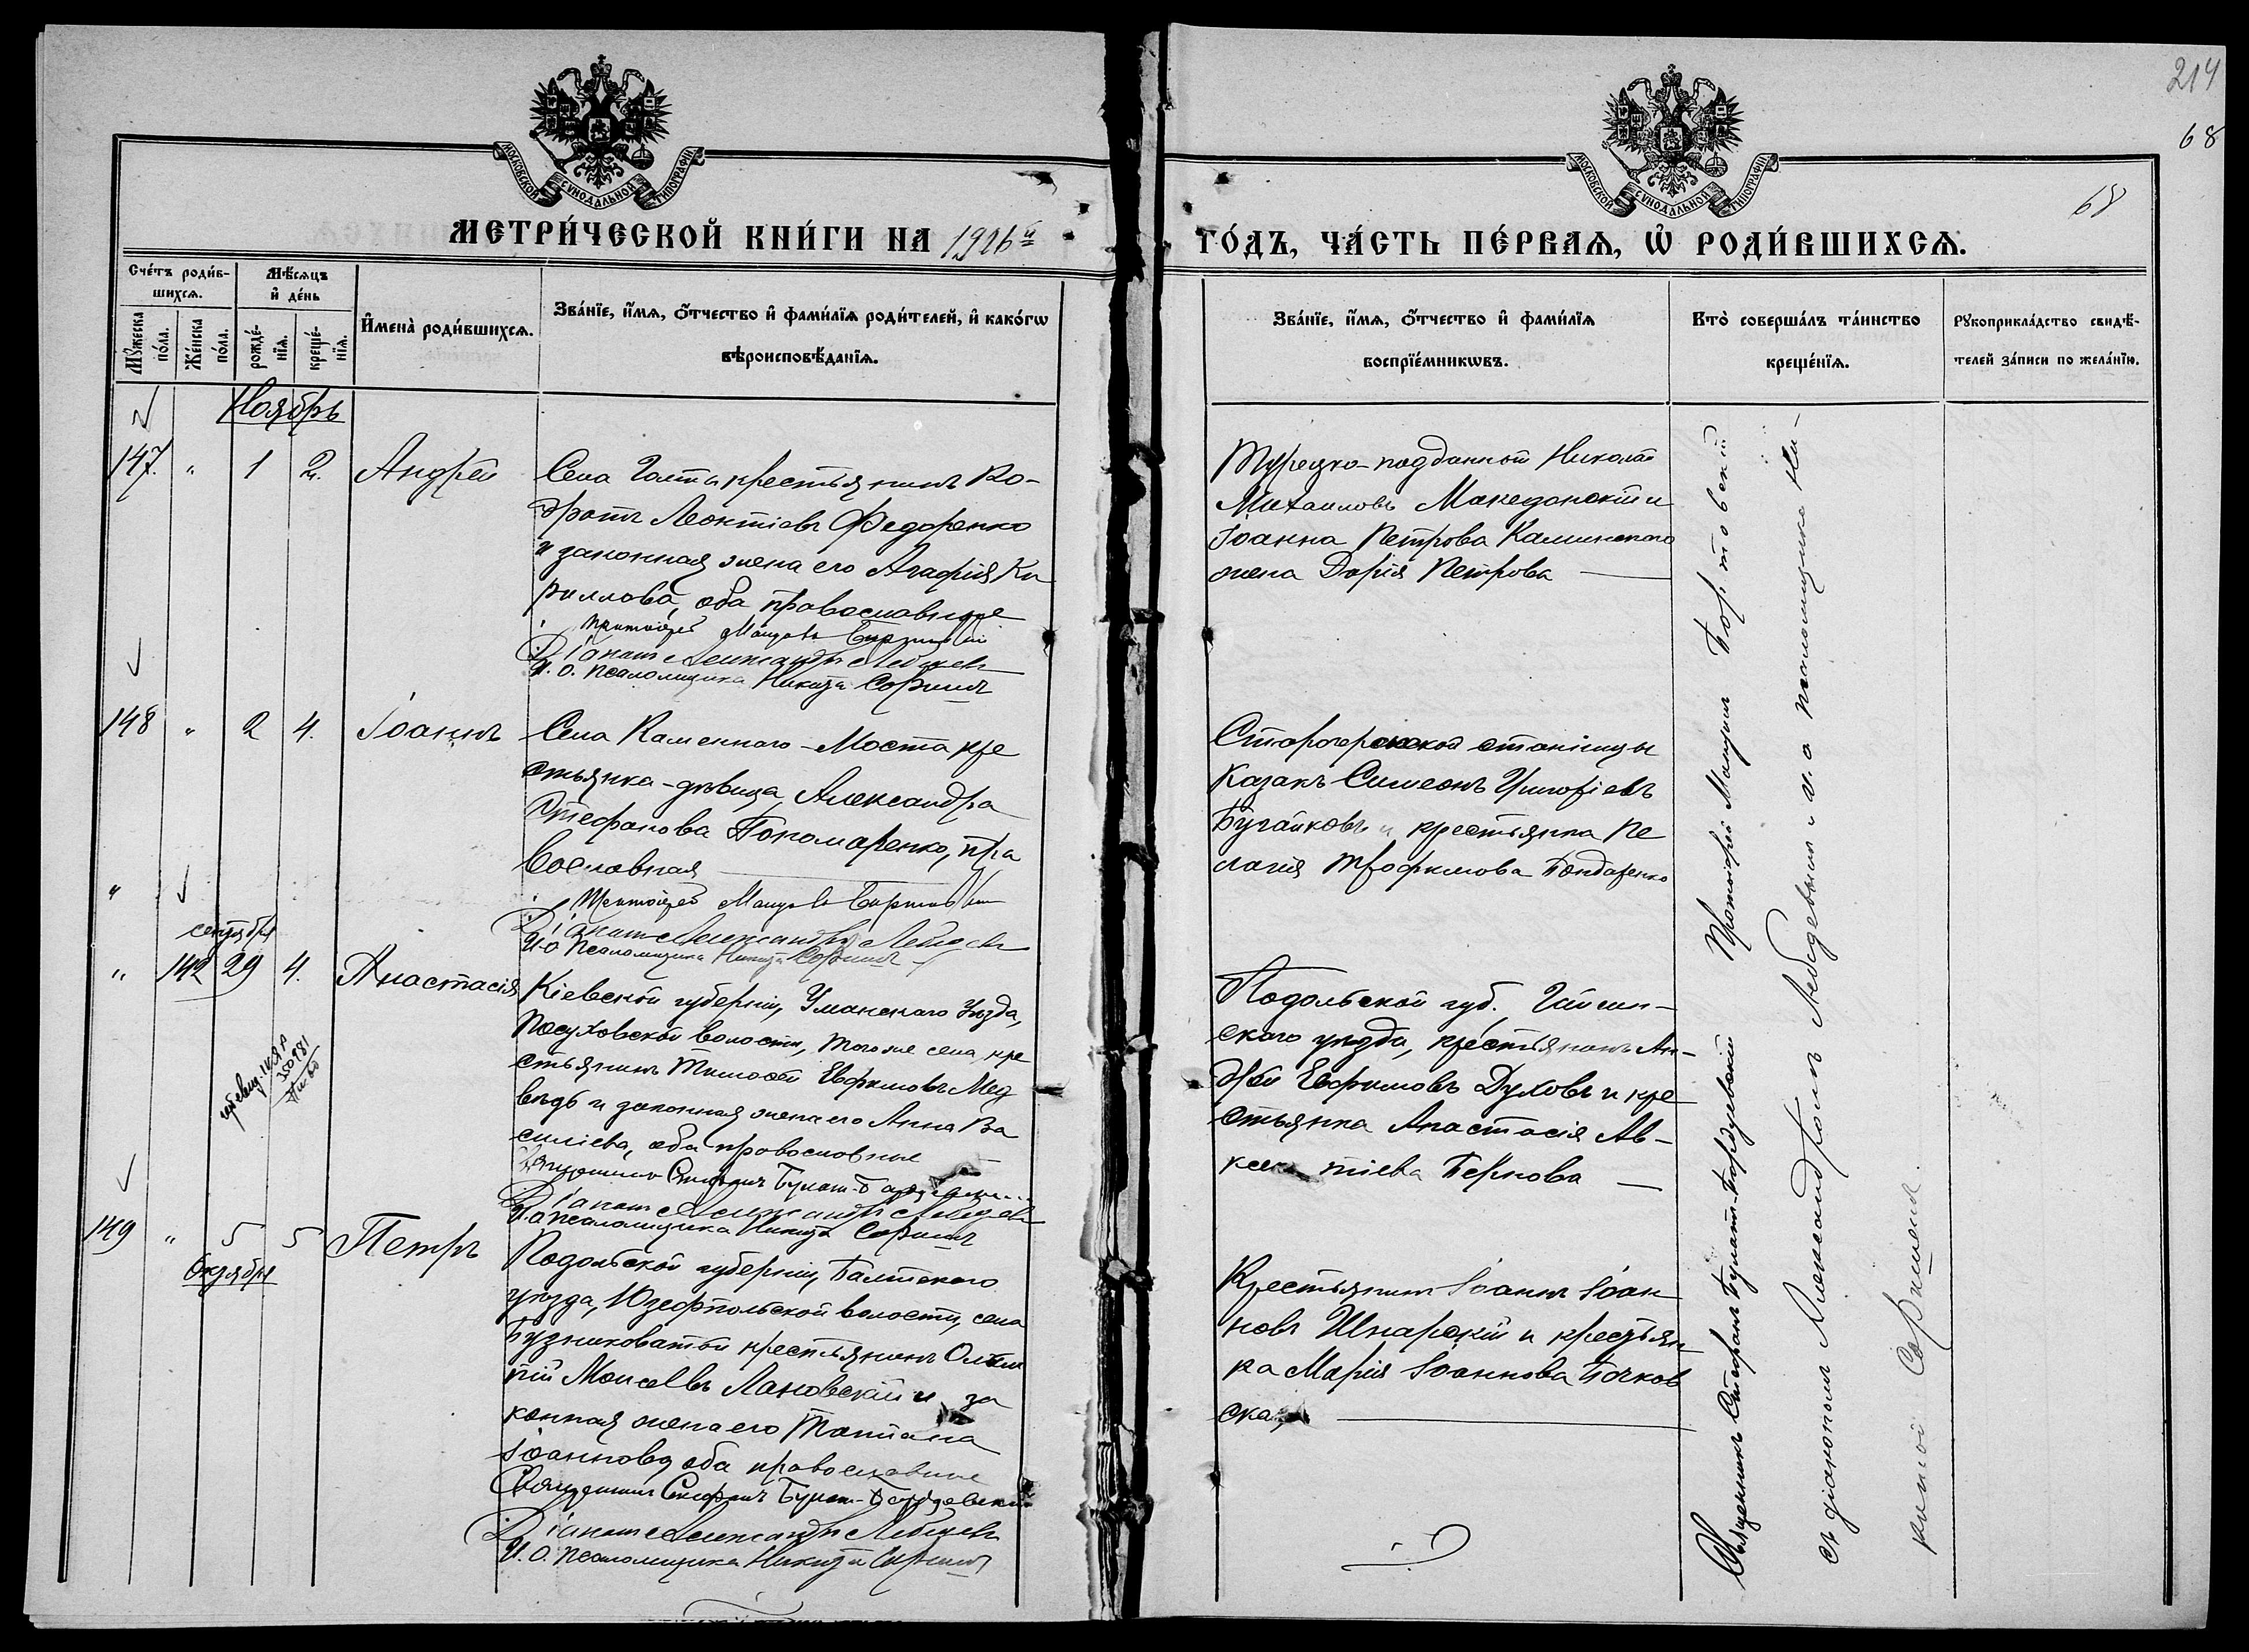 214
68
68
МОСКОВСКОЙ СѴНОДАЛЬНОЙ ТИПОГРАФІИ
МОСКОВСКОЙ СѴНОДАЛЬНОЙ ТИПОГРАФІИ
МЕТРИ́ЧЕСКОЙ КНИ́ГИ НА 1916й ГО́ДЪ, ЧА́СТЬ ПЕ́РВАѦ, Ѡ҆ РОДИ́ВШИХСѦ.
Сче́тъ роди́в-
шихсѧ.
Мѣ́сѧцъ
и҆ де́нь
Мꙋ́жеска
по́ла.
Же́нска
по́ла.
рожде́-
нїѧ.
креще́-
нїѧ.
И҆мена̀ роди́вшихсѧ.
Зва́нїе, и҆́мѧ, ѻ҆́тчество и҆ фами́лїѧ роди́телей, и҆ како́гѡ
вѣроисповѣ́данїѧ.
Зва́нїе, и҆́мѧ, ѻ҆́тчество и҆ фами́лїѧ
воспрїе́мникѡвъ.
Кто̀ соверша́лъ та́инство
креще́нїѧ.
Рꙋкоприкла́дство свидѣ́-
телей за́писи по жела́нїю.
Ноябрь
147. " 1 2. Андрей
Села Голты крестьянинъ Ко-
дратъ Леонтіевъ Федоренко
и законная жена его Агафія Ки
риллова, оба православные
Протоіерей
Діаконъ Александръ Лебедевъ
И. о. псаломщика Никита Соришъ
Турецко-подданной Николай
Михаиловъ Македонскій и
Іоанна Петрова Калинскаго
жена Дарія Петрова
148 " 2 4. Іоаннъ
Села Каменнаго-Моста кре
стьянка-дѣвица Александра
Стефанова Пономаренко, пра
вославная
Протоіерей
Діаконъ Александръ Лебедевъ
И. о. псаломщика Никита Соришъ
станицы
Казакъ Симеонъ Григоріевъ
Бугайковъ и крестьянка Пе
лагія Трофимова Бондаренко
сентября
" 142 29 4. Анастасія
Кіевской губерніи, Уманскаго уѣзда,
Посуховской волости, того же села кре
стьянинъ Тимофей Евфимовъ Мед
вѣдь и законная жена его Анна Ва
силіева, оба православные
Священникъ Стефанъ
Діаконъ Александръ Лебедевъ
И. о. псаломщика Никита Соришъ
350981
Подольской губ. Гайсин-
скаго уѣзда, крестьянинъ Ан-
дрей Евфимовъ Духовъ и кре
стьянка Анастасія Ав-
ксентіева Бернова
149 " 5 5 Петръ
Октября
Подольской губерніи, Балтскаго
уѣзда, Юзефпольской волости, села
Бузниковатой крестьянинъ Олим
пій Моисеевъ Лановскій и за
конная жена его Татіана
Іоаннова, оба православные
Священникъ Стефанъ
Діаконъ Александръ Лебедевъ
И. о. псаломщика Никита Соришъ
Крестьянинъ Іоаннъ Іоан
новъ Шкарскій и крестьян
ка Марія Іоаннова Бочков
ская
Священникъ Стефанъ Протоіерей
съ діакономъ Александромъ Лебедевымъ и и. о. псаломщика Ни-
китой Соришемъ.